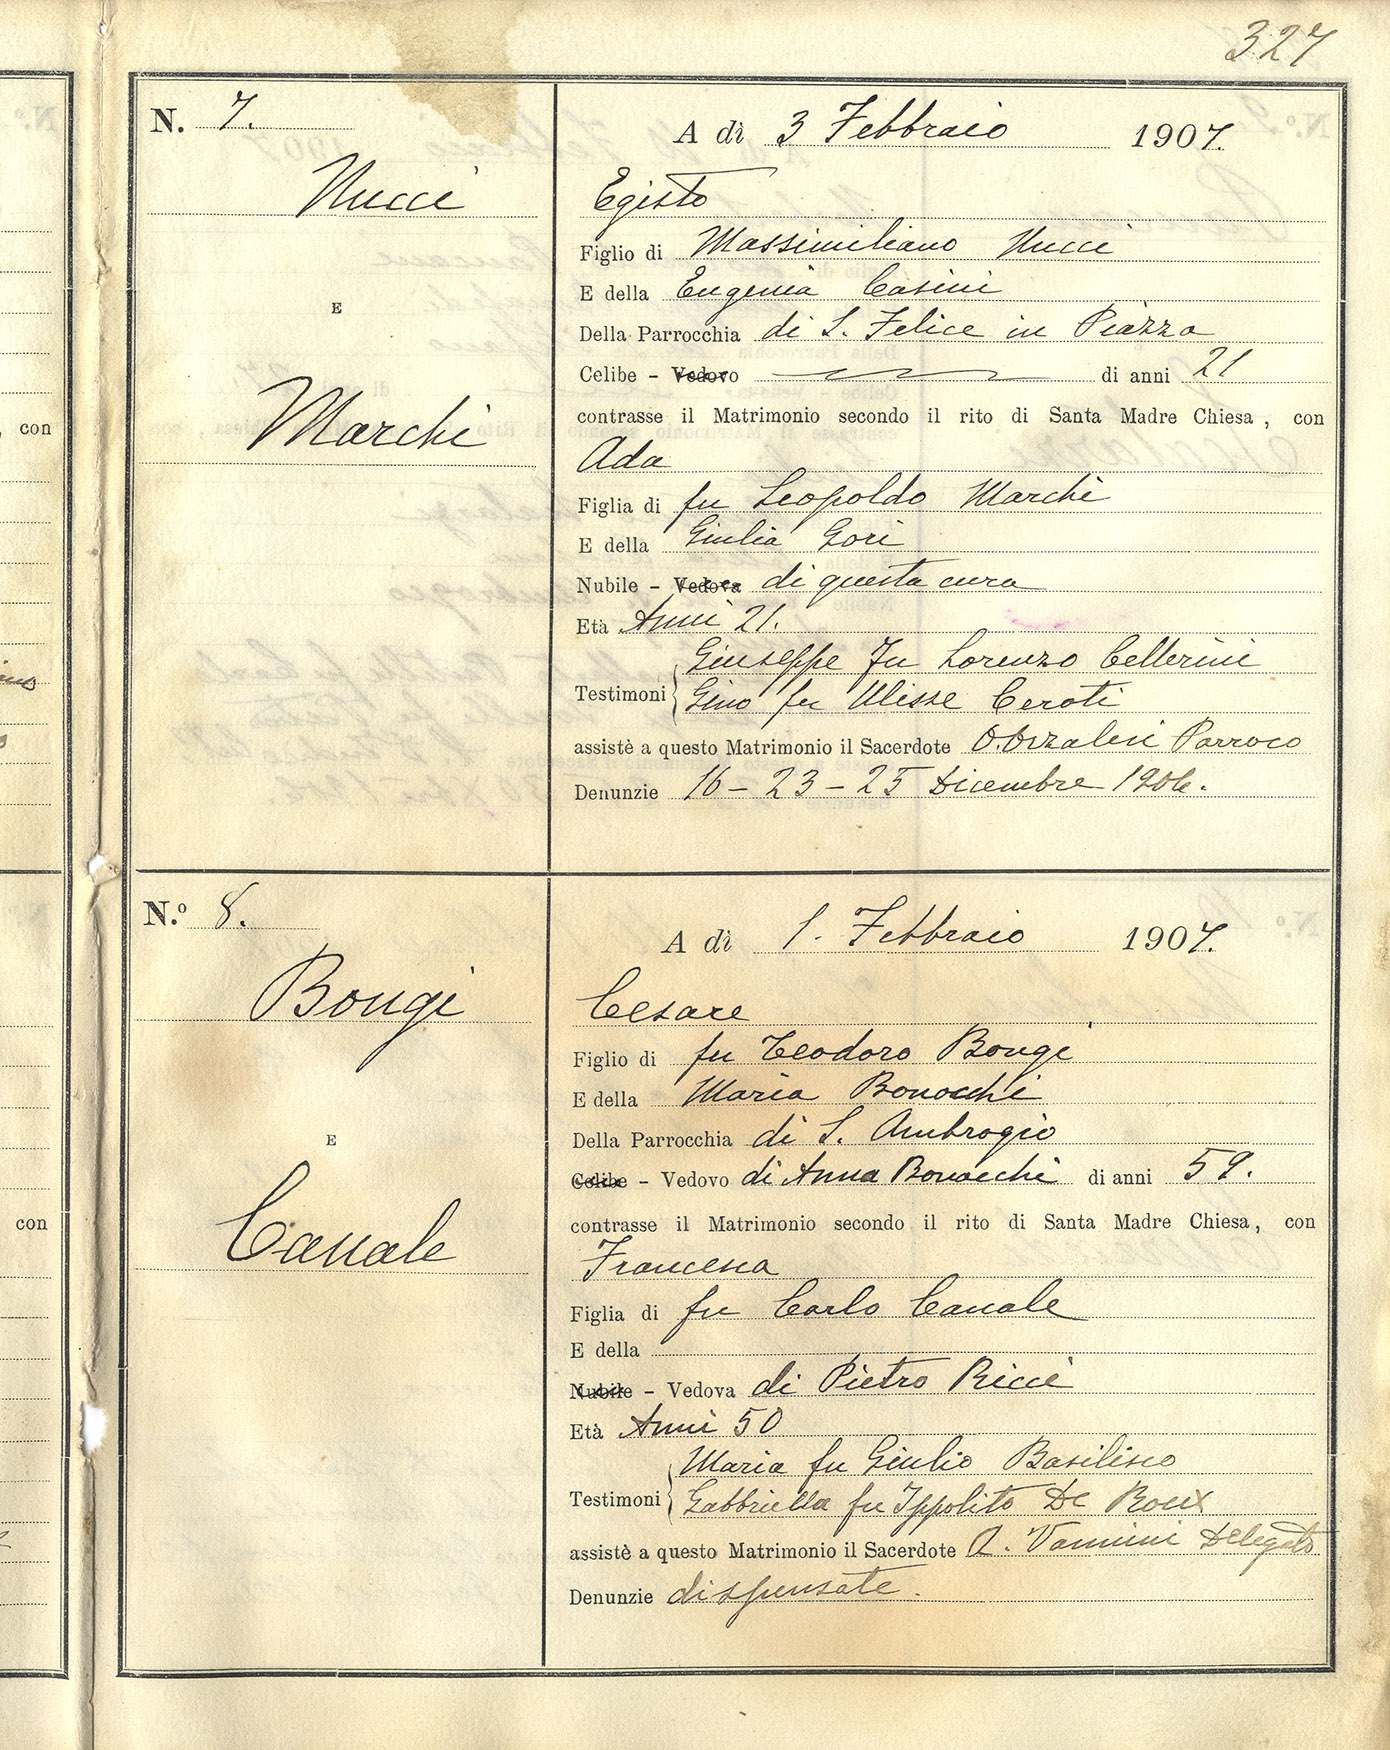 327
con
con
N. 7.
Nucci
E
Marchi
A dì 3 Febbraio 1907.
Egisto
Figlio di Massimiliano Nucci
E della Eugenia Casini
Della Parrocchia di S. Felice in Piazza
Celibe - Vedovo di anni 21
contrasse il Matrimonio secondo il rito di Santa Madre Chiesa, con
Ada
Figlia di fu Leopoldo Marchi
E della Giulia Gori
Nubile - Vedova di questa cura
Età Anni 21.
Giuseppe fu Lorenzo Cellerini
Testimoni
Gino fu Ulisse Ceroti
assistè a questo Matrimonio il Sacerdote O. Orzalesi Parroco
Denunzie 16 - 23 - 25 Dicembre 1906.
N.º 8.
Bongi
E
Canale
A dì 1. Febbraio 1907.
Cesare
Figlio di fu Teodoro Bongi
E della Maria Bonacchi
Della Parrocchia di S. Ambrogio
Celibe - Vedovo di Anna Bonacchi di anni 59.
contrasse il Matrimonio secondo il rito di Santa Madre Chiesa, con
Francesca
Figlia di fu Carlo Canale
E della
Nubile - Vedova di Pietro Ricci
Età Anni 50
Maria fu Giulio Basilisco
Testimoni
Gabbriella fu Ippolito De Roux
assistè a questo Matrimonio il Sacerdote A. Vannini Delegato
Denunzie dispensate.